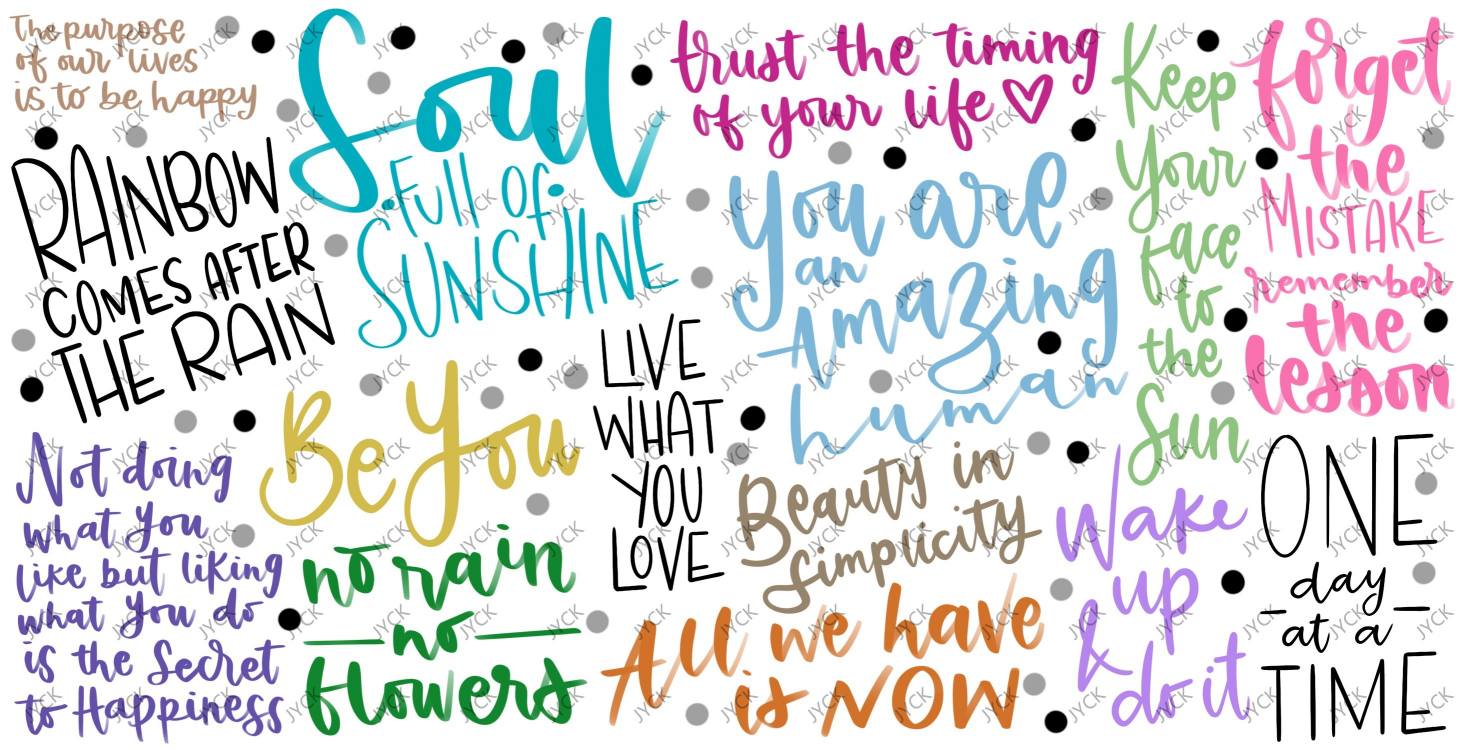 The purpose
of our lives
is to be happy
Soul
Full of
SUNSHINE
trust the timing
of your life
Keep
Your
face
to
the
Sun
forget
the
MISTAKE
remember
the
lesson
RAINBOW
COMES AFTER
THE RAIN
You are
an
Amazing
human
LIVE
WHAT
YOU
LOVE
Be You
Not doing
what you
like but liking
what you do
is the Secret
to Happiness
no rain
no
flowers
Beauty in
Simplicity
All we have
is NOW
Wake
up
& do it
ONE
day
at a
TIME
JYCK